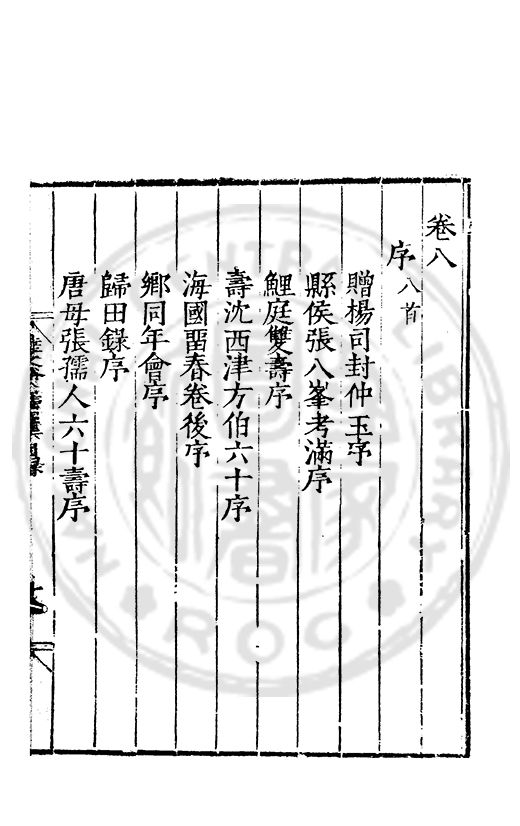 卷八
序八首
贈楊司封仲玉序
縣侯張八峯考滿序
鯉庭雙壽序
壽沈西津方伯六十序
海國畱春卷後序
鄉同年會序
歸田錄序
唐母張孺人六十壽序